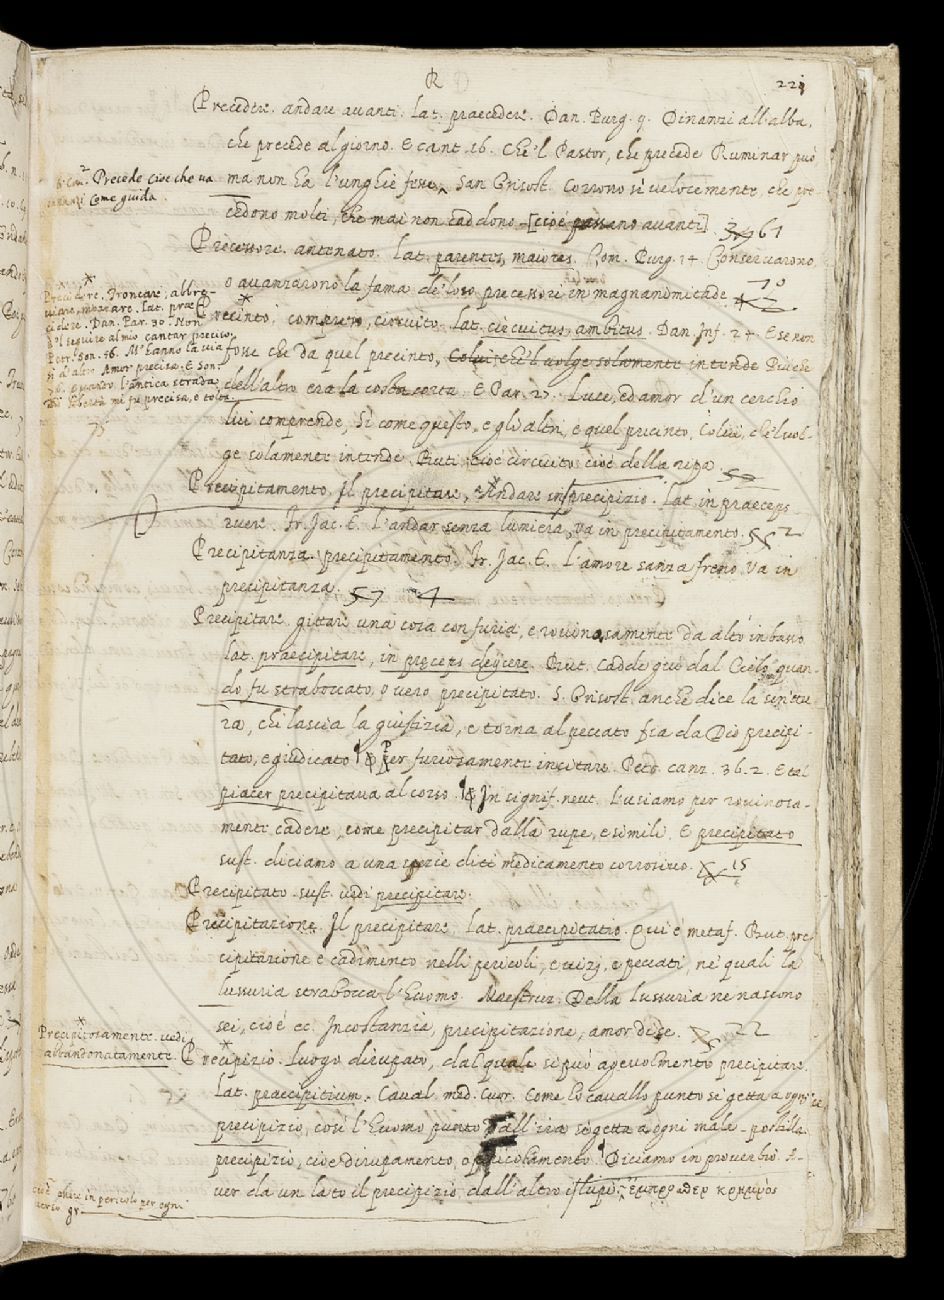 R
221
Precedere. andare avanti. Lat. praecedere. Dan. Purg. 9. Dinanzi all'alba,
che precede al giorno. E cant. 16. Che'l Pastor, che precede Ruminar può
ma non ha l'unghie fesse. San Grisost. Corrono sì velocemente, che pre-
cedono molti, che mai non caddono [cioè passano avanti]. 61
Precessore. antenato. Lat. parentes, maiores. Com. Purg. 14. Conservarono,
o avanzarono la fama de' loro precessori in magnanimitade.
Precinto. circuito. Lat. circuitus, ambitus. Dan. Inf. 24. E se non
fosse che da quel precinto, Colui, che'l volge solamente intende Più che
dell'altro era la costa corta. E Par. 27. Luce, ed amor d'un cerchio
lui comprende, Sì come questo, e gli altri, e quel precinto, Colui, che'l vol-
ge solamente intende. Buti cioè circuito cioè della ripa.
Precipitamento. Il precipitare, Andare in precipizio. Lat. in praeceps
ruere. Fr. Jac. T. L'andar senza lumiera, va in precipitamento.
Precipitanza. precipitamento. Fr. Jac. T. L'amore sanza freno, Va in
precipitanza. 57
Precipitare. gittare una cosa con furia, e rovinosamente da alto in basso
Lat. praecipitare, in preceps deijcere. But. Cadde giù dal Cielo quan-
do fu straboccato, o vero precipitato. S. Grisost. anche dice la scrittu-
ra, chi lascia la giustizia, e torna al peccato fia da Dio precipi-
tato, e giudicato Per furiosamente incitare. Petr. canz. 36. 2. E tal
piacer precipitava al corso. In signif. neut. L'usiamo per rovinosa-
mente cadere, come precipitar dalla rupe, e simili. E precipitato
sust. diciamo a una spezie di medicamento corrosivo. 15
Precipitato. sust. vedi precipitare.
Precipitazione. Il precipitare. Lat. praecipitatio. Qui è metaf. But. pre-
cipitazione è cadimento nelli pericoli, e vizj, e peccati, ne' quali la
lussuria strabocca l'Huomo. Maestruz. Della lussuria ne nascono
sei, cioè ec. Incostanzia, precipitazione, amor di se. 22
Precipizio. Luogo dirupato, dal quale si può agevolmente precipitare.
Lat. praecipitium. Caval. med. cuor. Come lo cavallo punto si getta a ogni
precipizio, così l'Huomo punto dall'ira si getta a ogni mala. postilla
precipizio, cioè dirupamento, o pericolamento. Diciamo in proverbio. A-
ver da un lato il precipizio, dall'altro i lupi. ἔμπροσθεν κρημνός
Precede cioè che va
innanzi come guida.
Precidere. Troncare, abbre-
viare, mozzare. Lat. prae-
cidere. Dan. Par. 30. Non
'l seguire al mio cantar preciso.
Petr. Son. 46. M'hanno la via
sì d'altro Amor precisa. E Son.
76. quando l'antica strada
Di libertà mi fu precisa, e tolta.
Precipitosamente. vedi
abbandonatamente.
essere in pericolo per ogni
verso. gr.